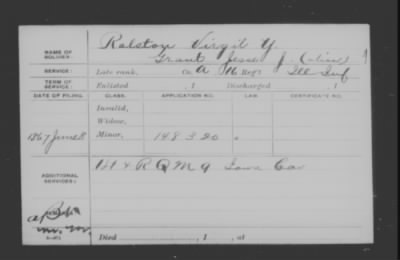 Ralston Virgil Y.
NAME OF SOLDIER:
Grant Jesse J. (alias)
SERVICE:
Late rank, Co. A 16 Reg't Ill Inf
Enlisted , 1 Discharged , 1
DATE OF FILING. CLASS. APPLICATION NO. LAW. CERTIFICATE NO.
Invalid,
Widow,
1867 June 11 Minor, 148320
ADDITIONAL SERVICES:
1st & R Q M 9 Iowa Cav
Died , 1 , at